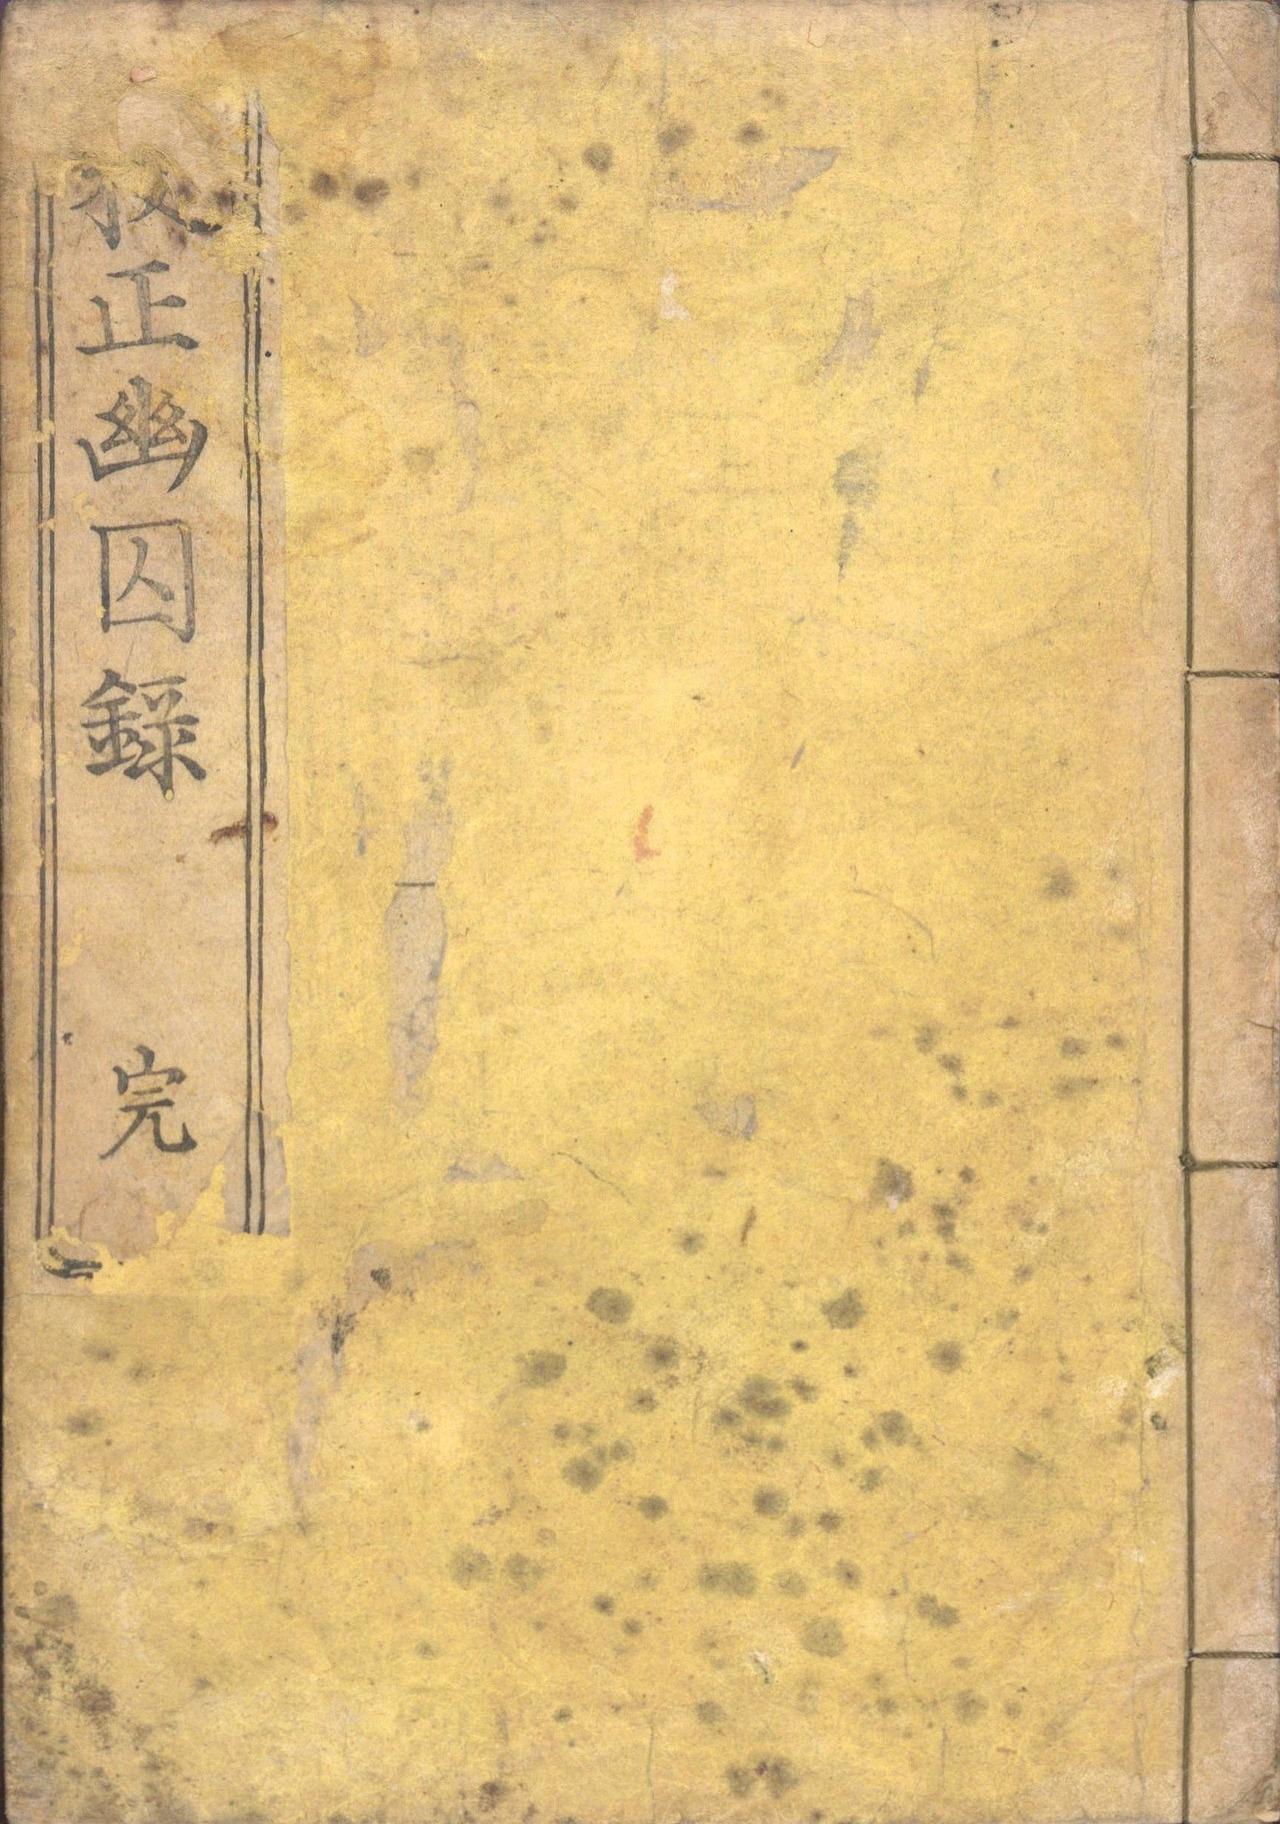 校正幽囚録 完